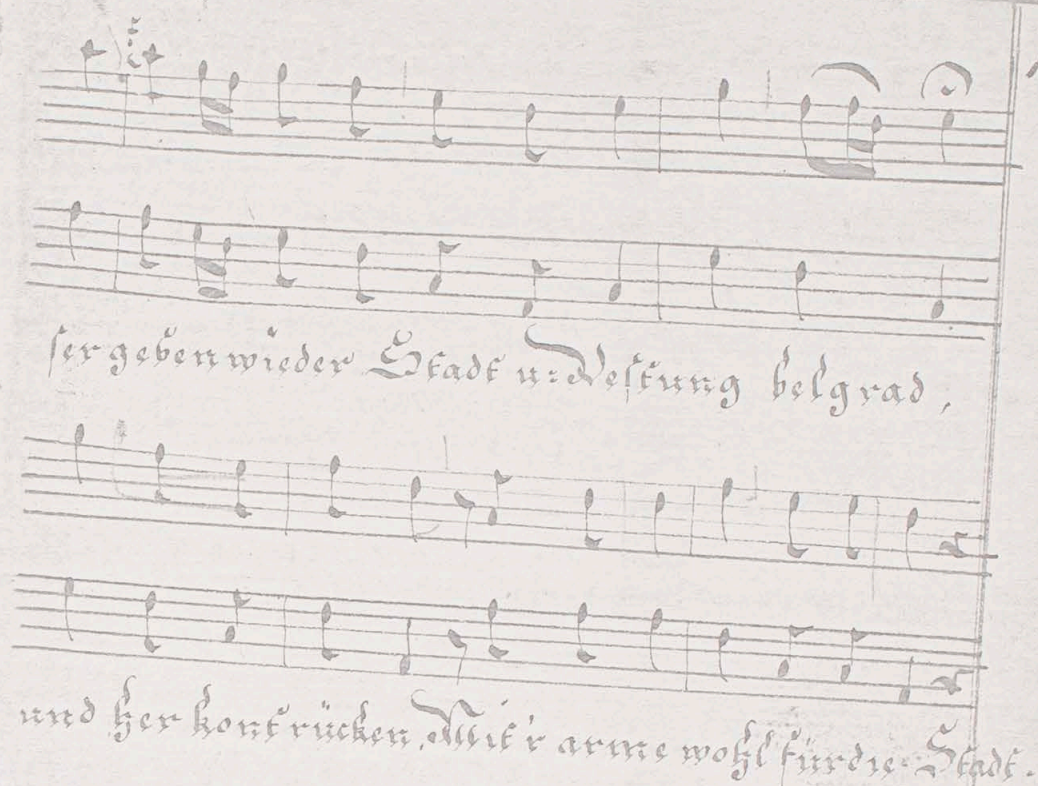 ser geben wieder Stadt u: Vestung belgrad,
und her kont rücken, Mit'r arme wohl für die Stadt.